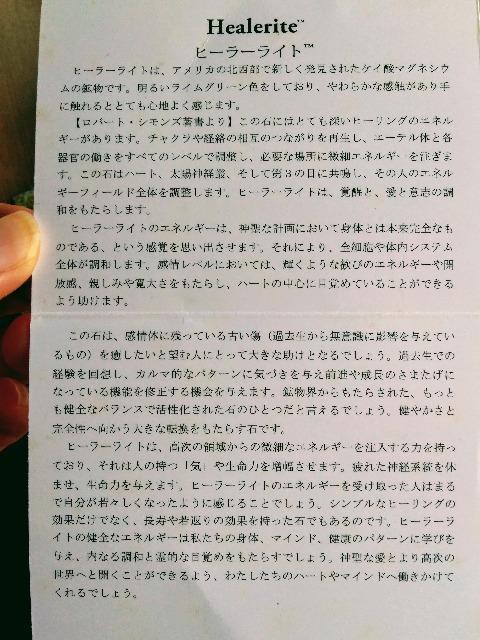 Healerite™
ヒーラーライト™
ヒーラーライトは、アメリカの北西部で新しく発見されたケイ酸マグネシウ
ムの鉱物です。明るいライムグリーン色をしており、やわらかな感触があり手
に触れるととても心地よく感じます。
【ロバート・シモンズ著書より】この石にはとても深いヒーリングのエネル
ギーがあります。チャクラや経絡の相互のつながりを再生し、エーテル体と各
器官の働きをすべてのレベルで調整し、必要な場所に微細エネルギーを注ぎま
す。この石はハート、太陽神経叢、そして第3の目に共鳴し、その人のエネル
ギーフィールド全体を調整します。ヒーラーライトは、覚醒と、愛と意志の調
和をもたらします。
ヒーラーライトのエネルギーは、神聖な計画において身体とは本来完全なも
のである、という感覚を思い出させます。それにより、全細胞や体内システム
全体が調和します。感情レベルにおいては、輝くような歓びのエネルギーや開
放感、親しみや寛大さをもたらし、ハートの中心に目覚めていることができる
よう助けます。
この石は、感情体に残っている古い傷（過去生から無意識に影響を与えてい
るもの）を癒したいと望む人にとって大きな助けとなるでしょう。過去生での
経験を回想し、カルマ的なパターンに気づきを与え前進や成長のさまたげに
なっている機能を修正する機会を与えます。鉱物界からもたらされた、もっと
も健全なバランスで活性化された石のひとつだと言えるでしょう。健やかさと
完全性へ向かう大きな転換をもたらす石です。
ヒーラーライトは、高次の領域からの微細なエネルギーを注入する力を持っ
ており、それは人の持つ「気」や生命力を増幅させます。疲れた神経系統を休
ませ、生命力を与えます。ヒーラーライトのエネルギーを受け取った人はまる
で自分が若々しくなったように感じることでしょう。シンプルなヒーリングの
効果だけでなく、長寿や若返りの効果を持った石でもあるのです。ヒーラーラ
イトの健全なエネルギーは私たちの身体、マインド、健康のパターンに学びを
与え、内なる調和と霊的な目覚めをもたらすでしょう。神聖な愛とより高次の
世界へと開くことができるよう、わたしたちのハートやマインドへ働きかけて
くれるでしょう。